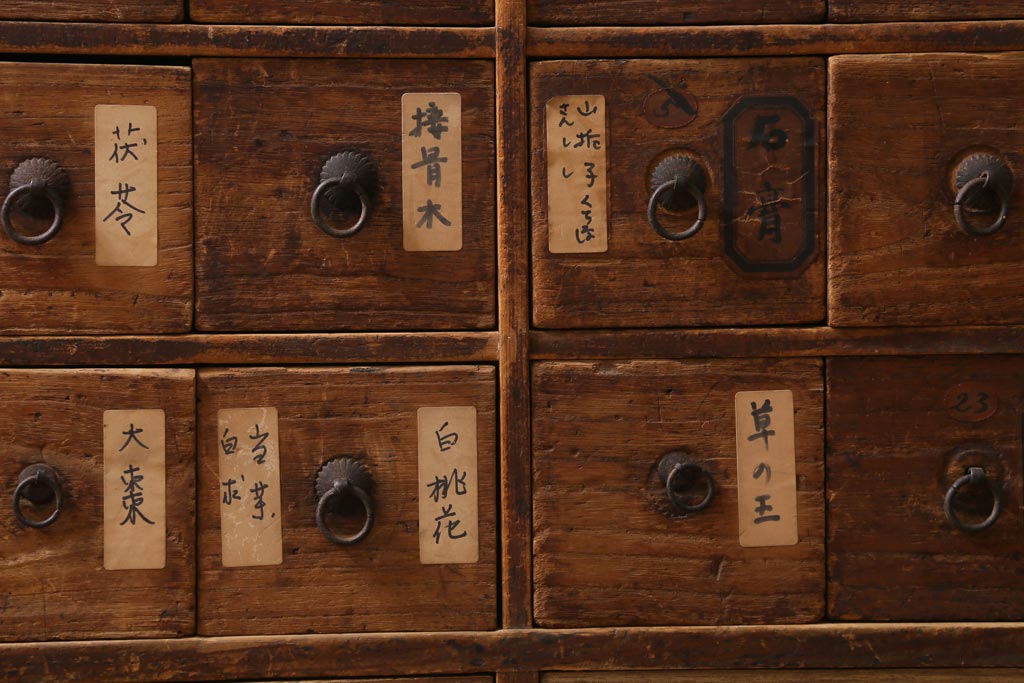 茯苓
接骨木
山梔子くちなし
さんしし
石膏
大棗
当芽
白求
白桃花
草の王
23